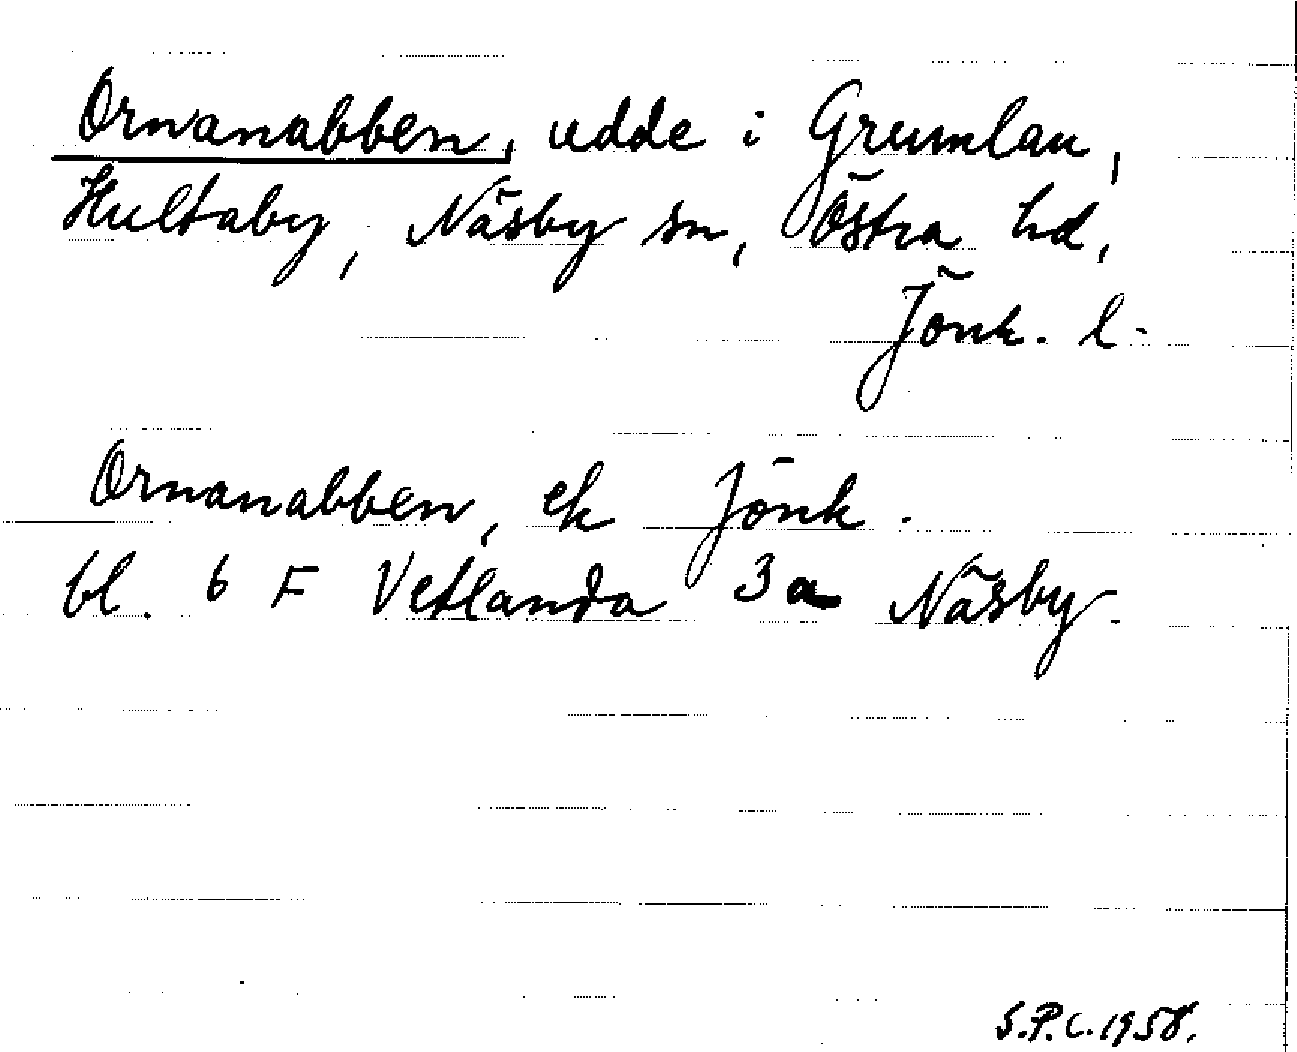 Ornanabben, udde i Grumlan,
Hultaby, Näsby sn, Östra hd,
Jönk. l.
Ornanabben, ek Jönk.
bl. 6 F Vetlanda 3a Näsby.
S.P.C. 1958.